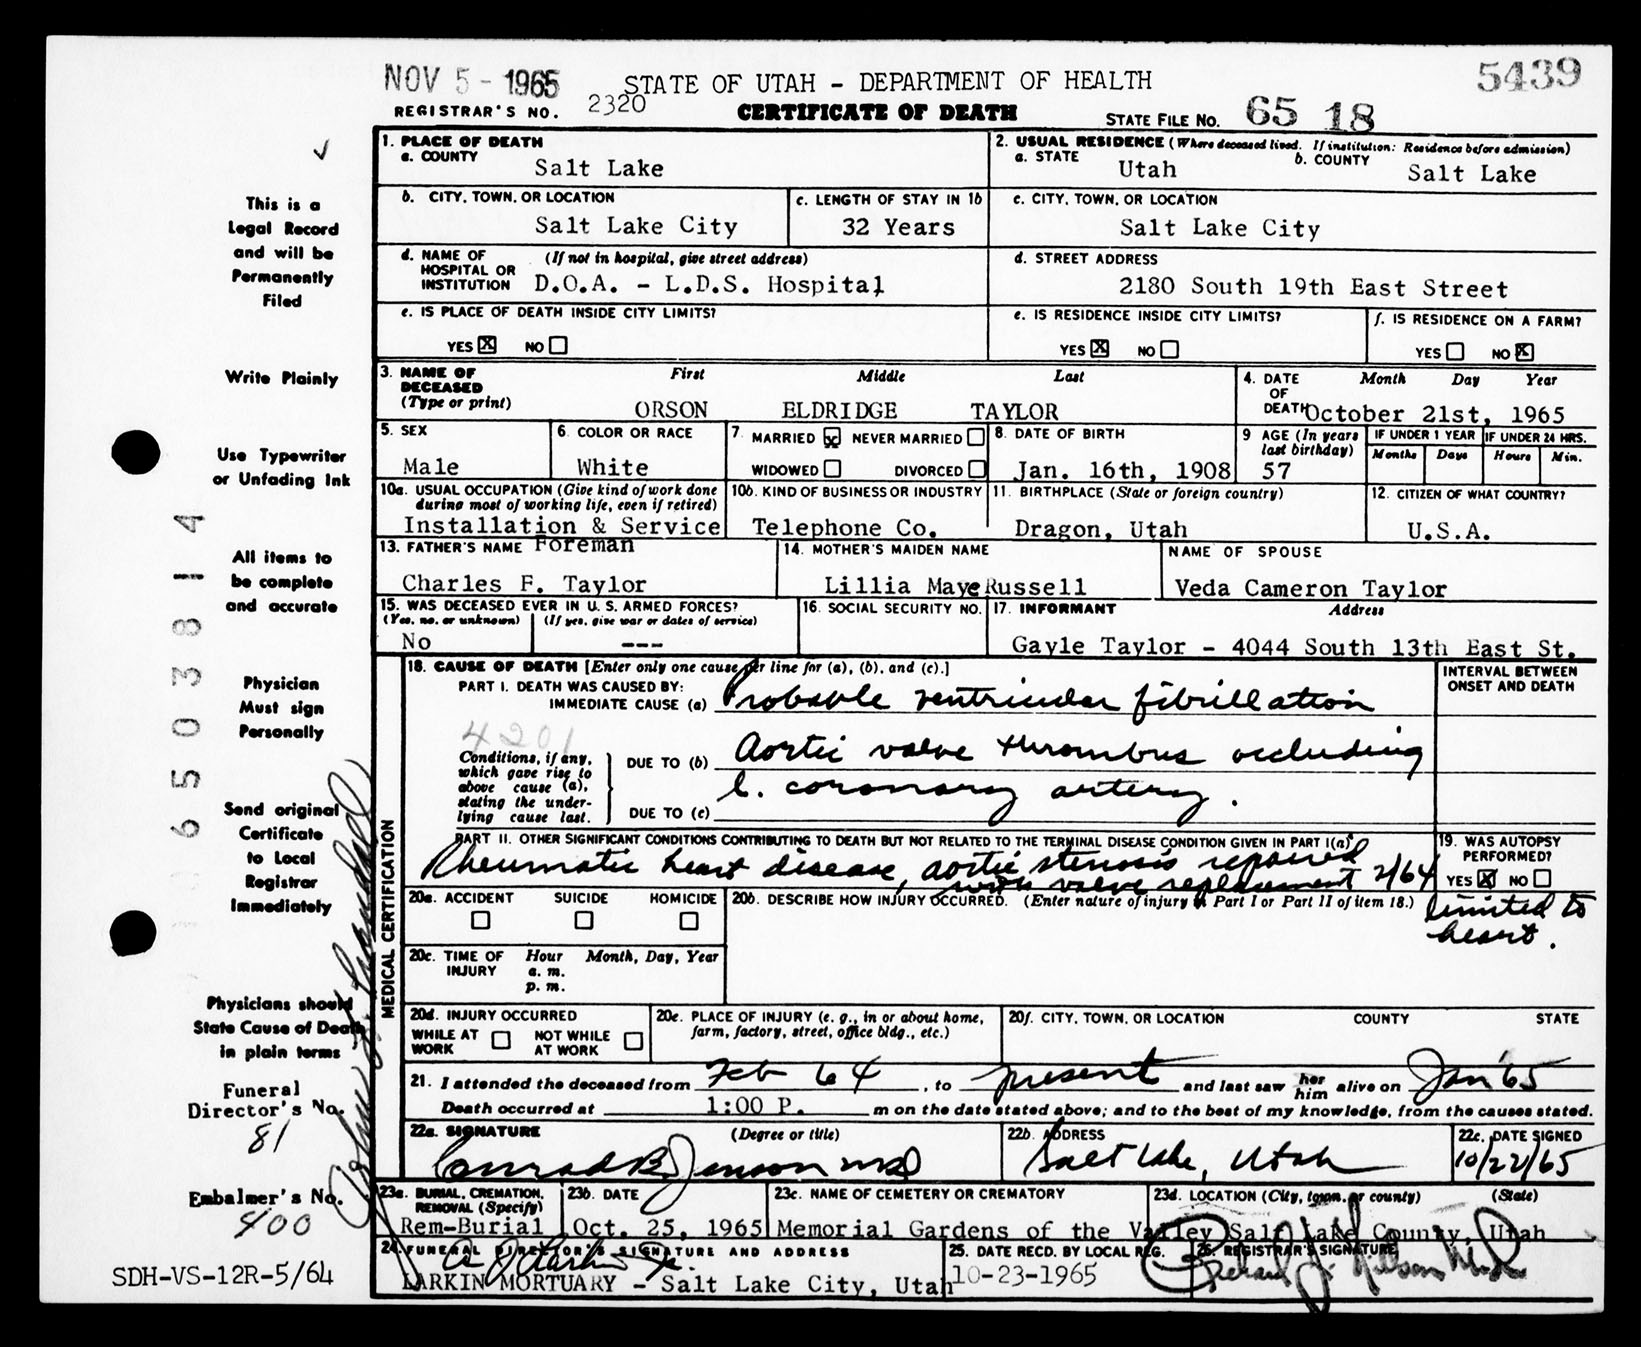 NOV 5 - 1965 STATE OF UTAH - DEPARTMENT OF HEALTH 5439
REGISTRAR'S NO. 2320 CERTIFICATE OF DEATH STATE FILE NO. 65 18
1. PLACE OF DEATH
a. COUNTY
Salt Lake
2. USUAL RESIDENCE (Where deceased lived. If institution: Residence before admission)
a. STATE b. COUNTY
Utah Salt Lake
b. CITY, TOWN, OR LOCATION
Salt Lake City
c. LENGTH OF STAY IN 1b
32 Years
c. CITY, TOWN, OR LOCATION
Salt Lake City
d. NAME OF HOSPITAL OR INSTITUTION (If not in hospital, give street address)
D.O.A. - L.D.S. Hospital
d. STREET ADDRESS
2180 South 19th East Street
e. IS PLACE OF DEATH INSIDE CITY LIMITS?
YES X NO
e. IS RESIDENCE INSIDE CITY LIMITS?
YES X NO
f. IS RESIDENCE ON A FARM?
YES NO X
3. NAME OF DECEASED (Type or print) First Middle Last
ORSON ELDRIDGE TAYLOR
4. DATE OF DEATH Month Day Year
October 21st, 1965
5. SEX
Male
6. COLOR OR RACE
White
7. MARRIED X NEVER MARRIED
WIDOWED DIVORCED
8. DATE OF BIRTH
Jan. 16th, 1908
9 AGE (In years last birthday)
57
IF UNDER 1 YEAR IF UNDER 24 HRS.
Months Days Hours Min.
10a. USUAL OCCUPATION (Give kind of work done during most of working life, even if retired)
Installation & Service
Foreman
10b. KIND OF BUSINESS OR INDUSTRY
Telephone Co.
11. BIRTHPLACE (State or foreign country)
Dragon, Utah
12. CITIZEN OF WHAT COUNTRY?
U.S.A.
13. FATHER'S NAME
Charles F. Taylor
14. MOTHER'S MAIDEN NAME
Lillia Maye Russell
NAME OF SPOUSE
Veda Cameron Taylor
15. WAS DECEASED EVER IN U. S. ARMED FORCES?
(Yes, no, or unknown) (If yes, give war or dates of service)
No ---
16. SOCIAL SECURITY NO.
17. INFORMANT Address
Gayle Taylor - 4044 South 13th East St.
MEDICAL CERTIFICATION
18. CAUSE OF DEATH [Enter only one cause per line for (a), (b), and (c).]
INTERVAL BETWEEN ONSET AND DEATH
PART I. DEATH WAS CAUSED BY:
IMMEDIATE CAUSE (a) Probable ventricular fibrillation
4201
Conditions, if any, which gave rise to above cause (a), stating the underlying cause last.
DUE TO (b) Aortic valve thrombus occluding
DUE TO (c) L. coronary artery.
PART II. OTHER SIGNIFICANT CONDITIONS CONTRIBUTING TO DEATH BUT NOT RELATED TO THE TERMINAL DISEASE CONDITION GIVEN IN PART I(a)
Rheumatic heart disease, aortic stenosis repaired
with valve replacement 2/64
19. WAS AUTOPSY PERFORMED?
YES X NO
limited to
heart.
20a. ACCIDENT SUICIDE HOMICIDE
20b. DESCRIBE HOW INJURY OCCURRED. (Enter nature of injury in Part I or Part II of item 18.)
20c. TIME OF INJURY Hour Month, Day, Year
a. m.
p. m.
20d. INJURY OCCURRED
WHILE AT WORK NOT WHILE AT WORK
20e. PLACE OF INJURY (e. g., in or about home, farm, factory, street, office bldg., etc.)
20f. CITY, TOWN, OR LOCATION COUNTY STATE
21. I attended the deceased from Feb 64, to present and last saw her him alive on Jan '65
Death occurred at 1:00 P. m on the date stated above; and to the best of my knowledge, from the causes stated.
22a. SIGNATURE (Degree or title)
Conrad B. Jenson MD
22b. ADDRESS
Salt Lake, Utah
22c. DATE SIGNED
10/22/65
23a. BURIAL, CREMATION, REMOVAL (Specify)
Rem-Burial
23b. DATE
Oct. 25, 1965
23c. NAME OF CEMETERY OR CREMATORY
Memorial Gardens of the Valley
23d. LOCATION (City, town, or county) (State)
Salt Lake County, Utah
24. FUNERAL DIRECTOR'S SIGNATURE AND ADDRESS
LARKIN MORTUARY - Salt Lake City, Utah
25. DATE RECD. BY LOCAL REG.
10-23-1965
26. REGISTRAR'S SIGNATURE
This is a
Legal Record
and will be
Permanently
Filed
Write Plainly
Use Typewriter
or Unfading Ink
All items to
be complete
and accurate
Physician
Must sign
Personally
Send original
Certificate
to Local
Registrar
Immediately
Physicians should
State Cause of Death
in plain terms
Funeral
Director's No.
81
Embalmer's No.
400
SDH-VS-12R-5/64